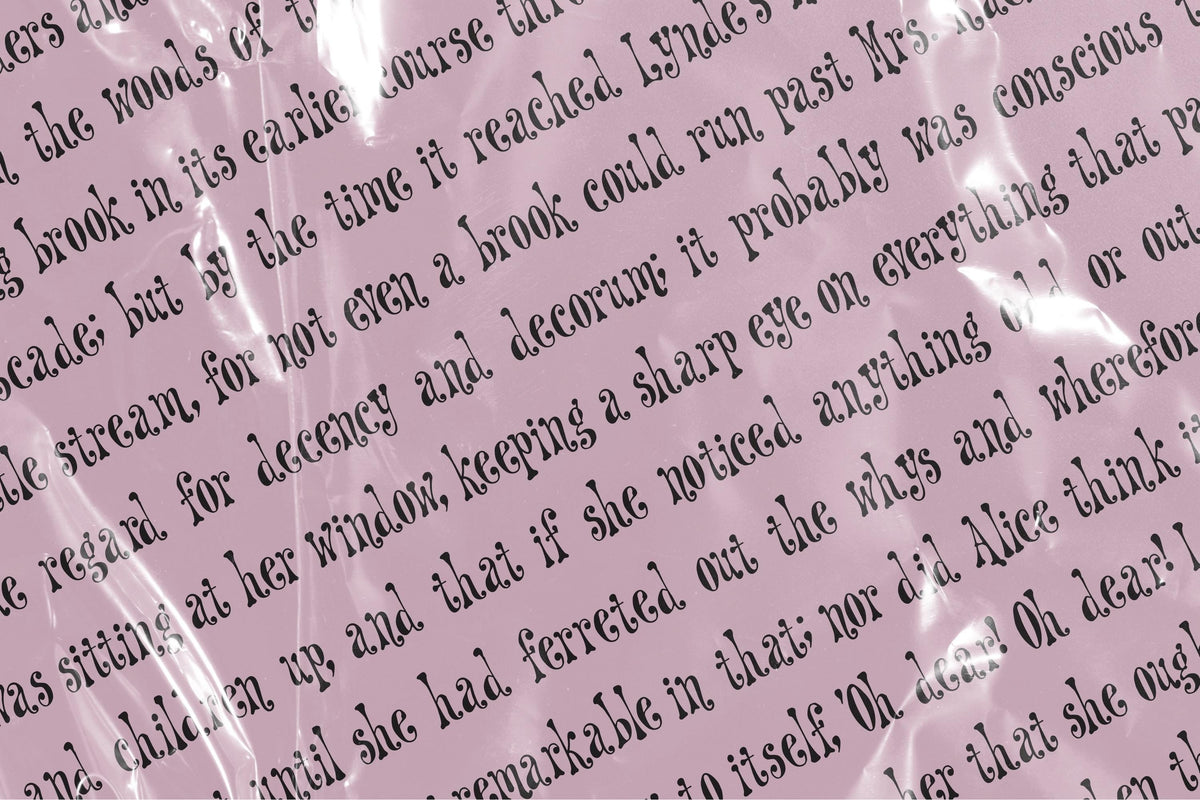 and
the woods of
brook in its earlier course
but by the time it reached Lynde's
stream, for not even a brook could run past Mrs.
regard for decency and decorum; it probably was conscious
was sitting at her window, keeping a sharp eye on everything that
and children up, and that if she noticed anything odd or out
until she had ferreted out the whys and
remarkable in that; nor did Alice think
to itself, 'Oh dear! Oh dear! I
that she